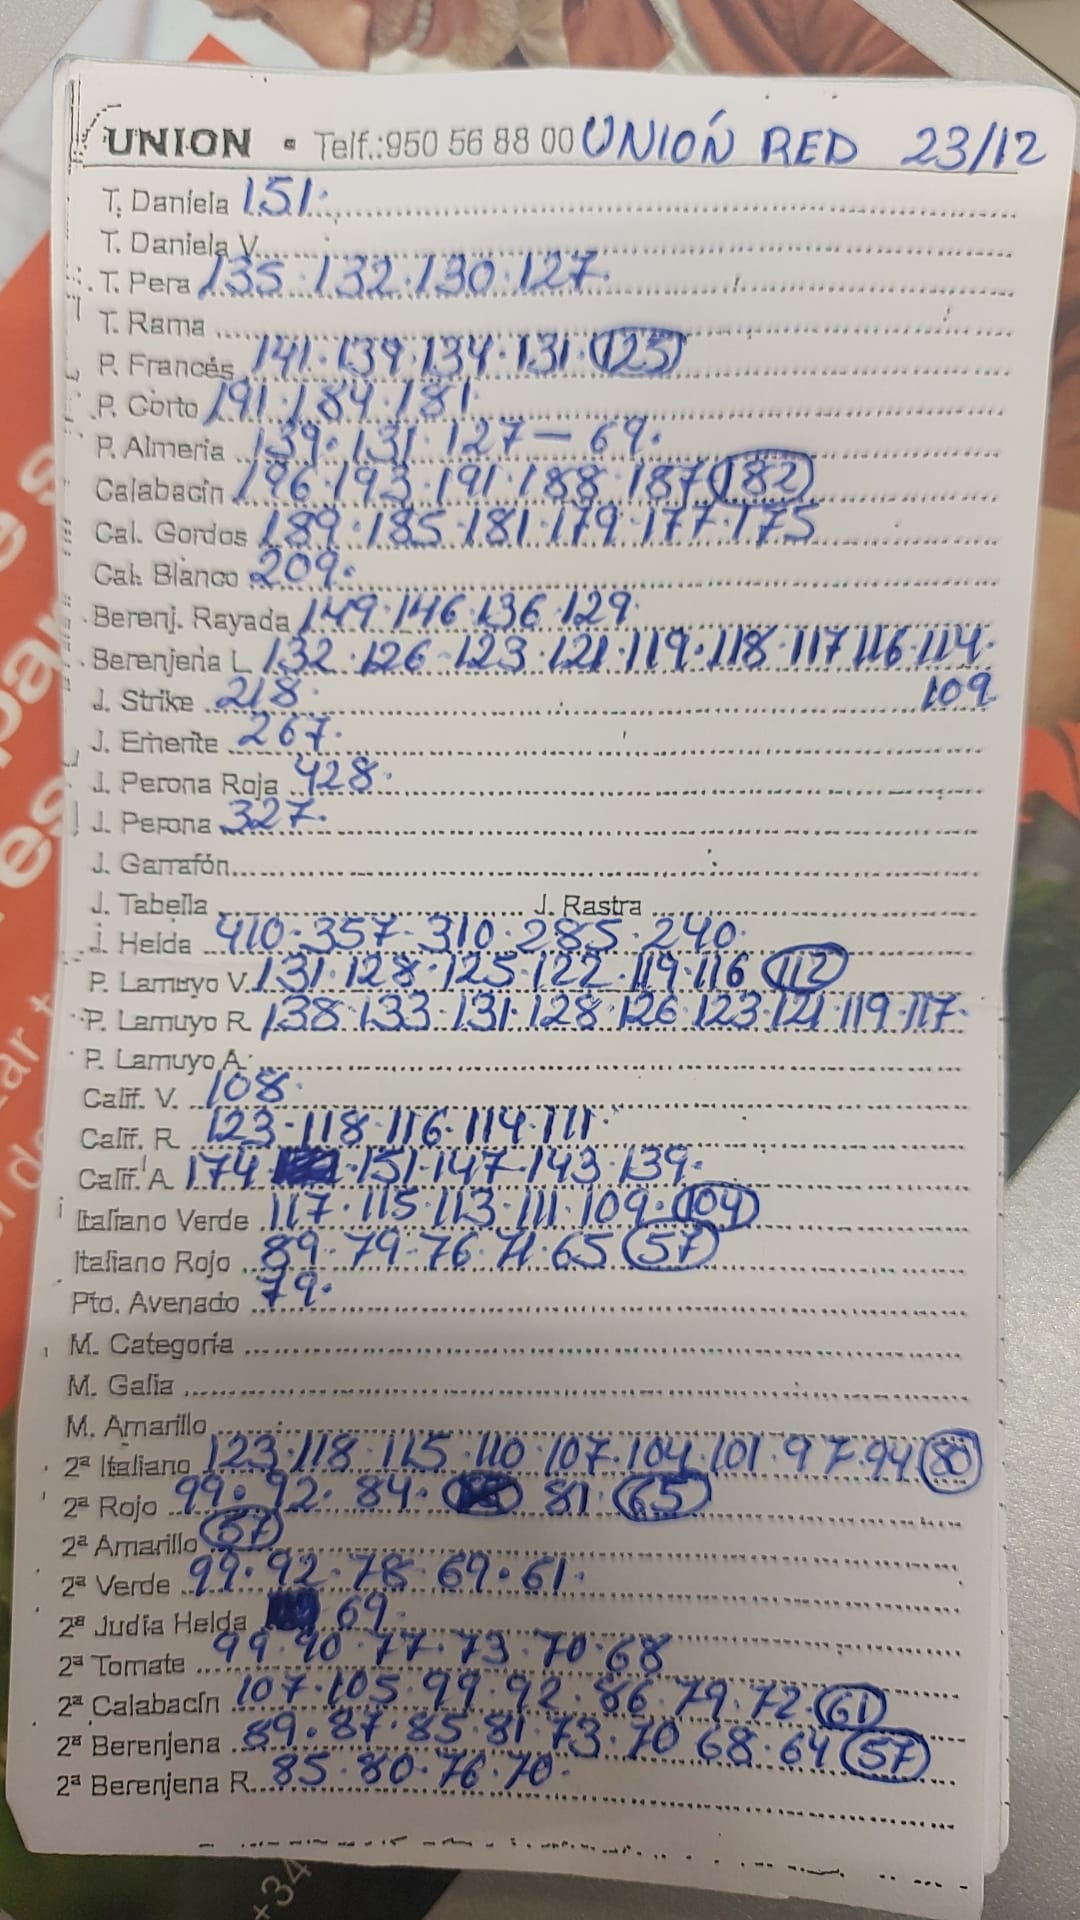 UNION - Telf.:950 56 88 00 UNIÓN RED 23/12
T. Daniela 151.
T. Daniela V.
T. Pera 135.132.130.127.
T. Rama
P. Francés 141.139.134.131.125
P. Corto 191.184.181.
P. Almeria 139.131.127-69.
Calabacín 196.193.191.188.187.182
Cal. Gordos 189.185.181.179.177.175
Cal. Blanco 209.
Berenj. Rayada 149.146.136.129.
Berenjena L 132.126-123.121.119.118.117 116.114.
109
J. Strike 218.
J. Emerite 267.
J. Perona Roja 428.
J. Perona 327.
J. Garrafón
J. Tabella J. Rastra
J. Helda 410.357-310.285.240.
P. Lamuyo V. 131.128.125.122.119.116 112
P. Lamuyo R. 138.133.131.128.126.123.121.119.117.
P. Lamuyo A.
Calif. V. 108.
Calif. R. 123-118.116.114.111.
Calif. A 174 .151.147-143.139.
Italiano Verde 117.115.113.111.109.104
Italiano Rojo 89.79.76.71.65 57
Pto. Avenado 79.
M. Categoria
M. Galia
M. Amarillo
2ª Italiano 123.118.115.110.107.104.101.97.94 80
2ª Rojo 99.92.84. 81. 65
2ª Amarillo 57
2ª Verde 99.92.78.69.61.
2ª Judia Helda 69.
2ª Tomate 99.90.77.73.70.68
2ª Calabacín 107.105.99.92.86.79.72.61
2ª Berenjena 89.87.85.81.73.70 68.64 57
2ª Berenjena R. 85.80.76.70.
par
es
zar t
+34